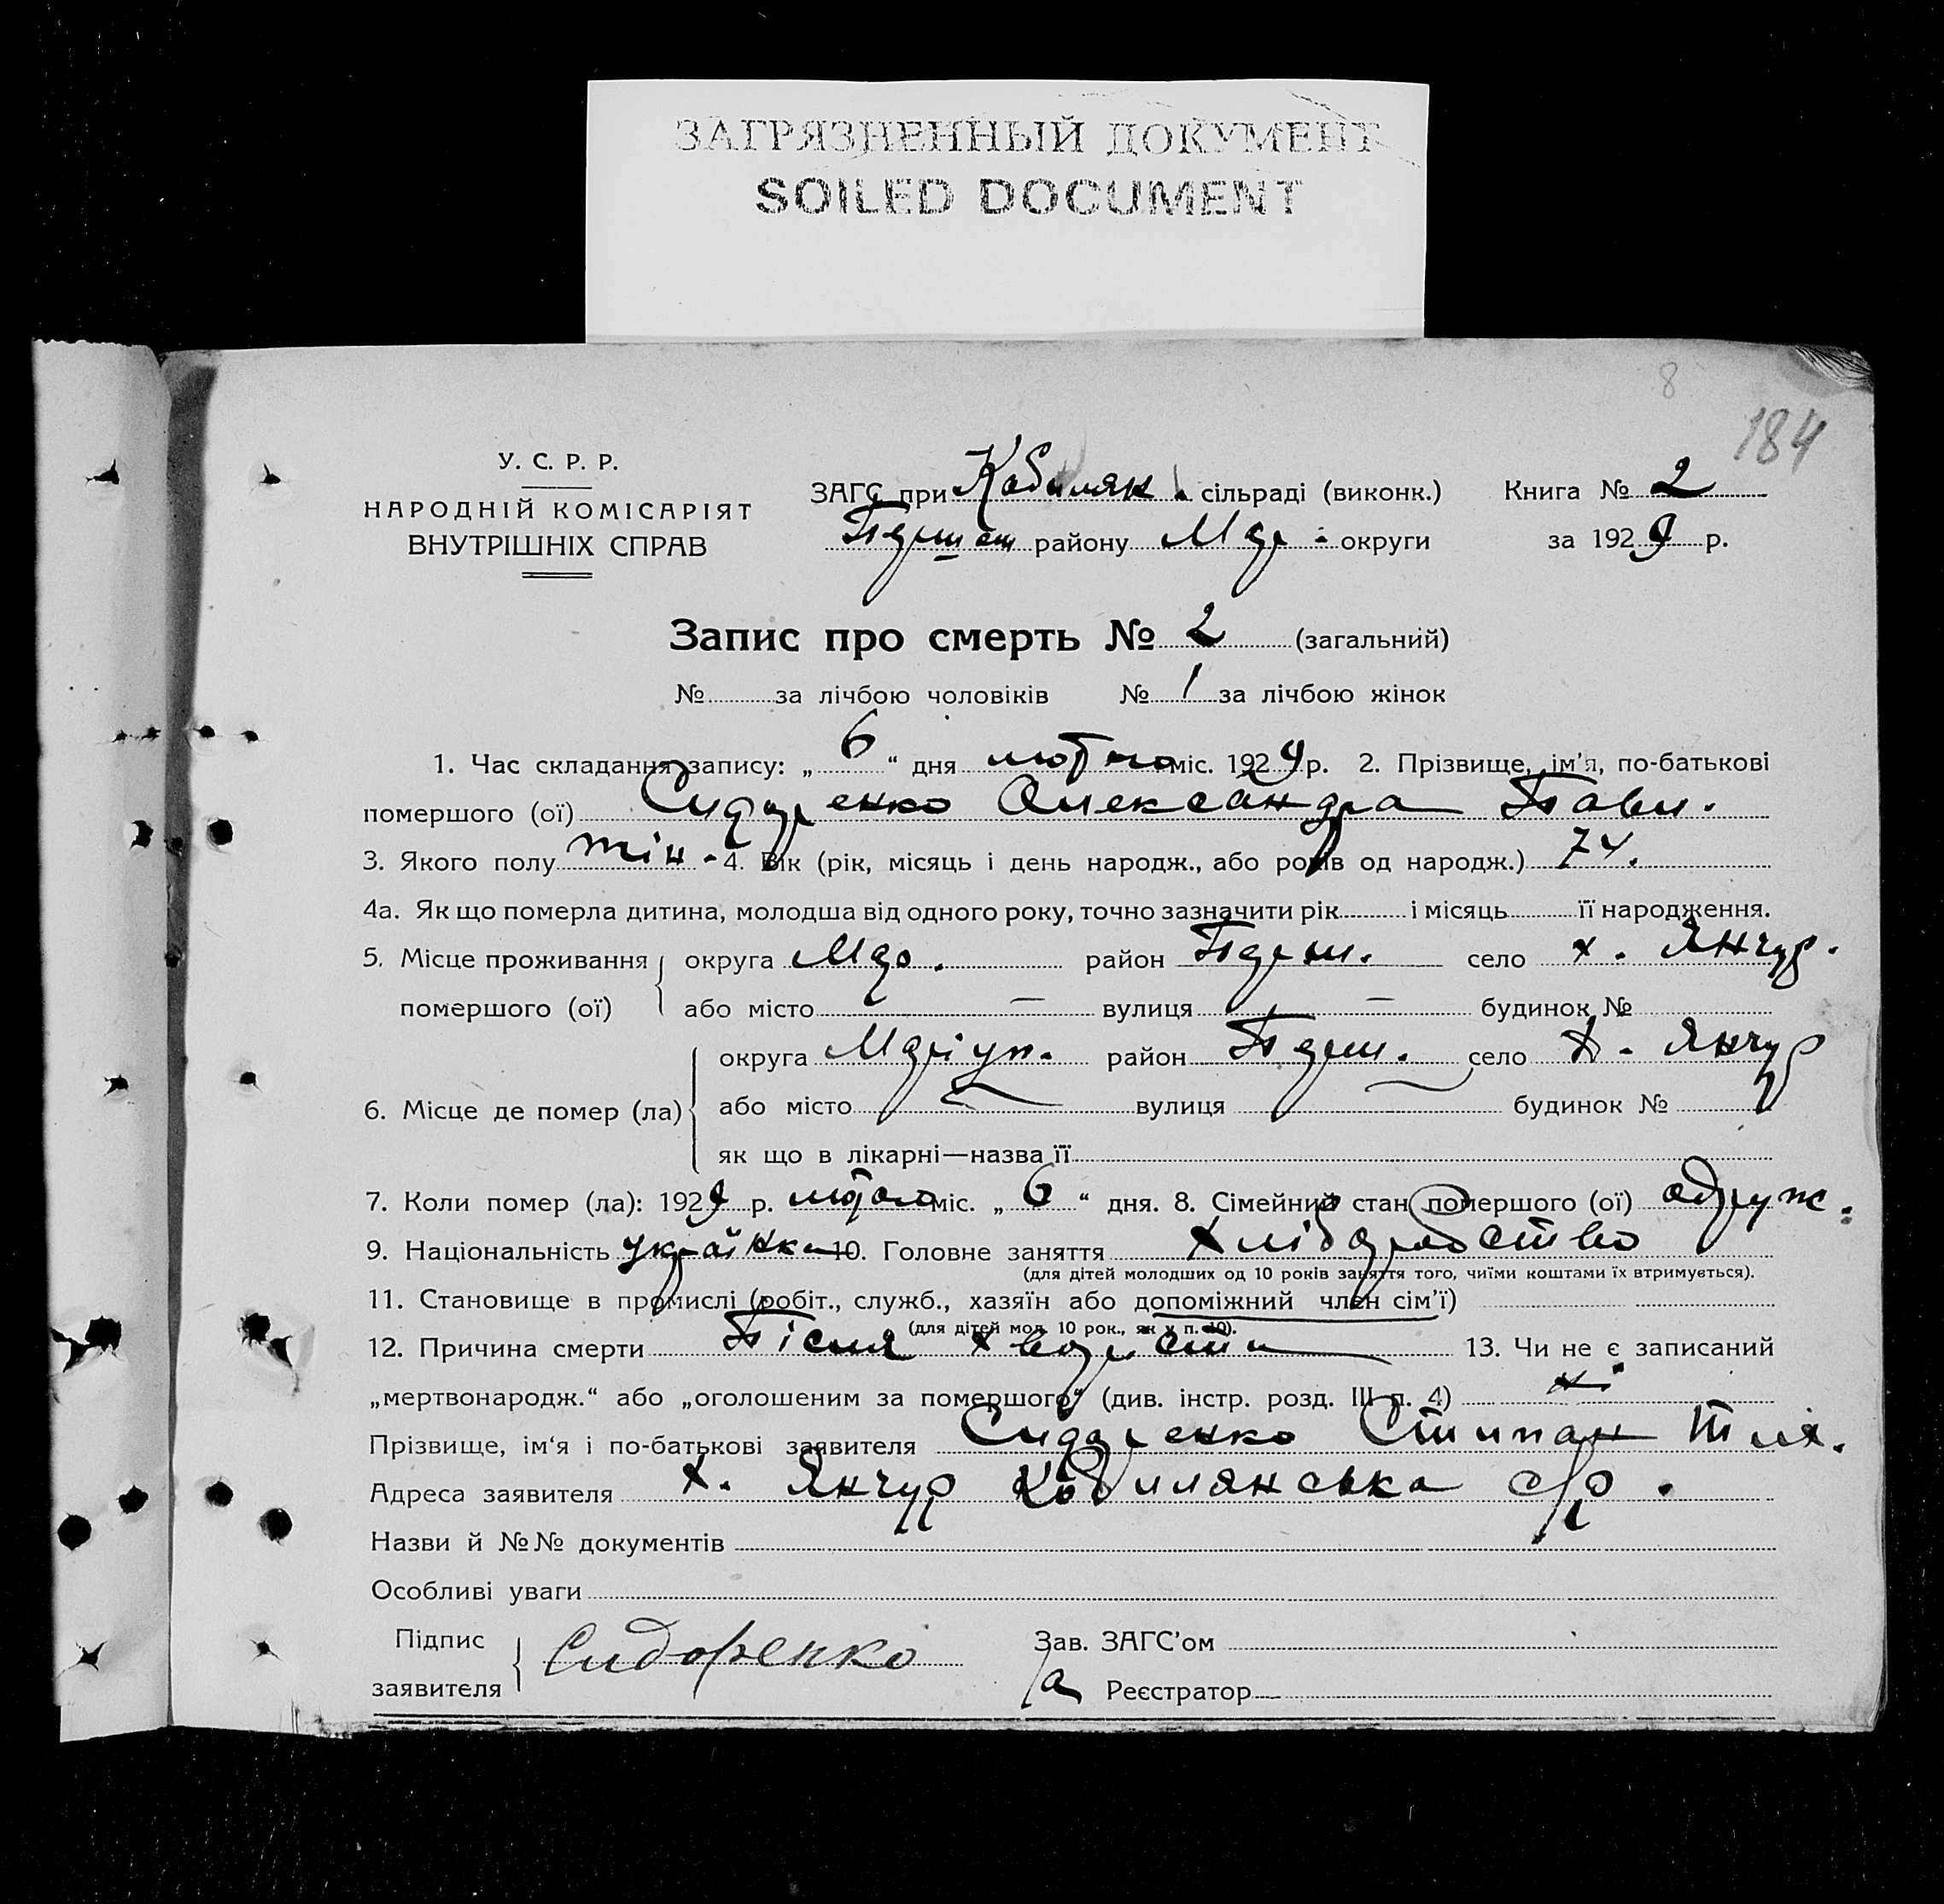 ЗАГРЯЗНЕННЫЙ ДОКУМЕНТ
SOILED DOCUMENT
8
184
У. С. Р. Р.
НАРОДНІЙ КОМІСАРІЯТ
ВНУТРІШНІХ СПРАВ
ЗАГС при Кобиляк. сільраді (виконк.) Книга № 2
району округи за 1929 р.
Запис про смерть № 2 (загальний)
№ за лічбою чоловіків № 1 за лічбою жінок
1. Час складання запису: „6“ дня лютого міс. 1929 р. 2. Прізвище, ім’я, по-батькові
помершого (ої) Сидоренко Олександра Павл.
3. Якого полу жін. 4. Вік (рік, місяць і день народж., або років од народж.) 74.
4а. Як що померла дитина, молодша від одного року, точно зазначити рік і місяць її народження.
5. Місце проживання помершого (ої) округа район село х. Янчур.
або місто — вулиця — будинок №
6. Місце де помер (ла) округа Маріуп. район село х. Янчур
або місто вулиця будинок №
як що в лікарні—назва її
7. Коли помер (ла): 1929 р. лютого міс. „6“ дня. 8. Сімейний стан помершого (ої) одруж.
9. Національність українка 10. Головне заняття хліборобство
(для дітей молодших од 10 років заняття того, чиїми коштами їх втримується).
11. Становище в промислі (робіт., служб., хазяїн або допоміжний член сім’ї)
(для дітей мол. 10 рок., як у п. 10).
12. Причина смерти Після хворости 13. Чи не є записаний
„мертвонародж.“ або „оголошеним за помершого“ (див. інстр. розд. III п. 4) ні
Прізвище, ім‘я і по-батькові заявителя Сидоренко Стипан
Адреса заявителя х. Янчур Кобилянська с/р.
Назви й №№ документів
Особливі уваги
Підпис заявителя Сидоренко
Зав. ЗАГС’ом
Реєстратор